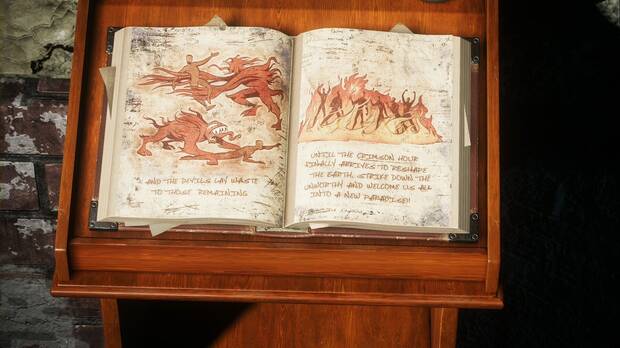 AND THE DEVILS LAY WASTE
TO THOSE REMAINING
UNTIL THE CRIMSON HOUR
FINALLY ARRIVES TO RESHAPE
THE EARTH, STRIKE DOWN THE
UNWORTHY AND WELCOME US ALL
INTO A NEW PARADISE!!